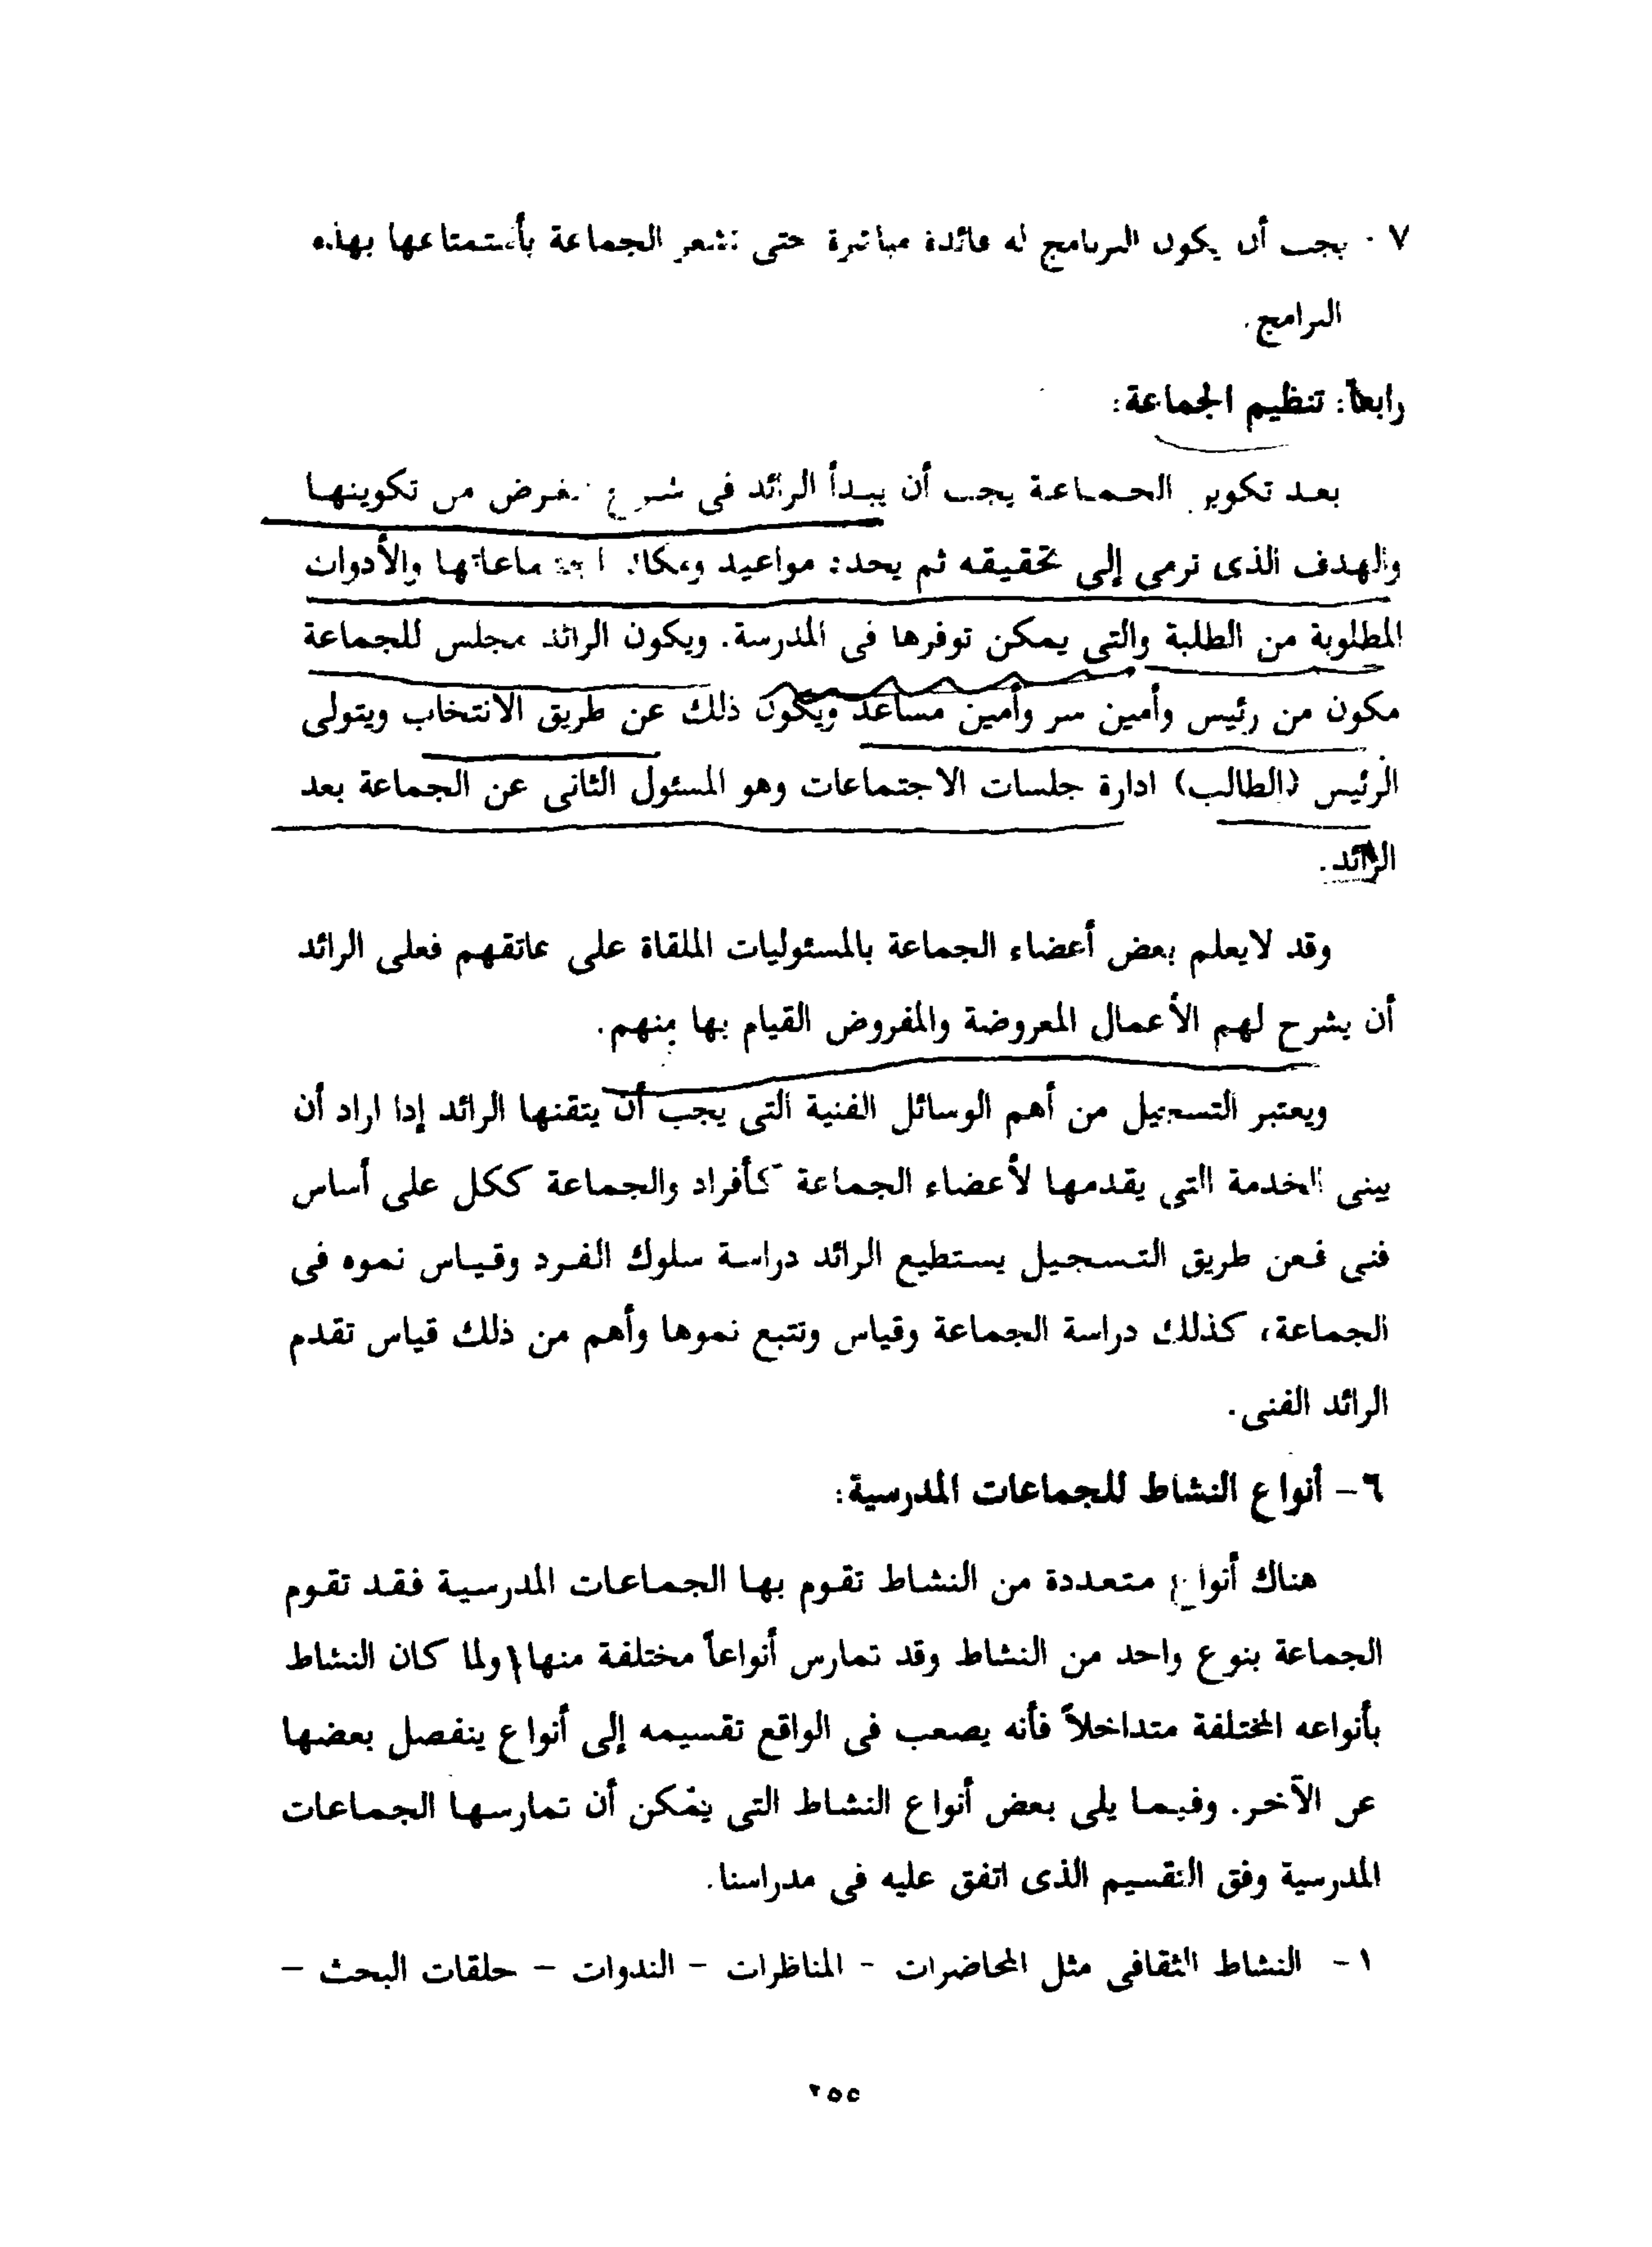 ٧ - يجب أن يكون البرنامج له فائدة مباشرة حتى تشعر الجماعة بأستمتاعها بهذه
البرامج.
رابعاً: تنظيم الجماعة:
بعد تكوين الجماعة يجب أن يبدأ الرائد فى شرح الغرض من تكوينها
والهدف الذى ترمى إلى تحقيقه ثم يحدد مواعيد ومكان اجتماعاتها والأدوات
المطلوبة من الطلبة والتى يمكن توفرها فى المدرسة. ويكون الرائد مجلس للجماعة
مكون من رئيس وأمين سر وأمين مساعد ويكون ذلك عن طريق الانتخاب ويتولى
الرئيس (الطالب) ادارة جلسات الاجتماعات وهو المسئول الثانى عن الجماعة بعد
الرائد.
وقد لايعلم بعض أعضاء الجماعة بالمسئوليات الملقاة على عاتقهم فعلى الرائد
أن يشرح لهم الأعمال المعروضة والمفروض القيام بها منهم.
ويعتبر التسجيل من أهم الوسائل الفنية التى يجب أن يتقنها الرائد إذا اراد أن
يبنى الخدمة التى يقدمها لأعضاء الجماعة كأفراد والجماعة ككل على أساس
فنى فعن طريق التسجيل يستطيع الرائد دراسة سلوك الفرد وقياس نموه فى
الجماعة، كذلك دراسة الجماعة وقياس وتتبع نموها وأهم من ذلك قياس تقدم
الرائد الفنى.
٦- أنواع النشاط للجماعات المدرسية:
هناك أنواع متعددة من النشاط تقوم بها الجماعات المدرسية فقد تقوم
الجماعة بنوع واحد من النشاط وقد تمارس أنواعاً مختلفة منها ولما كان النشاط
بأنواعه المختلفة متداخلاً فأنه يصعب فى الواقع تقسيمه إلى أنواع ينفصل بعضها
عن الآخر. وفيما يلى بعض أنواع النشاط التى يمكن أن تمارسها الجماعات
المدرسية وفق التقسيم الذى اتفق عليه فى مدراسنا.
١- النشاط الثقافى مثل المحاضرات - المناظرات - الندوات - حلقات البحث -
٢٥٥